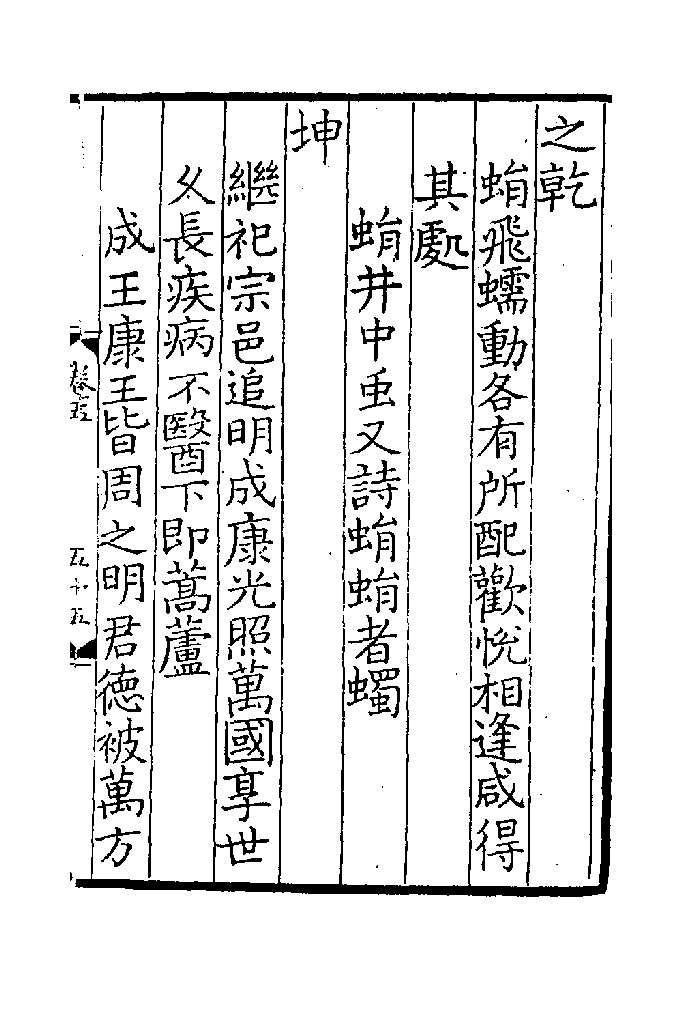 之乾
蜎飛蠕動各有所配歡悅相逢咸得
其處
蜎井中䖝又詩蜎蜎者蠋
坤
繼祀宗邑追明成康光照萬國享世
久長疾病不醫下即蒿蘆
成王康王皆周之明君德被萬方
卷五
五十五